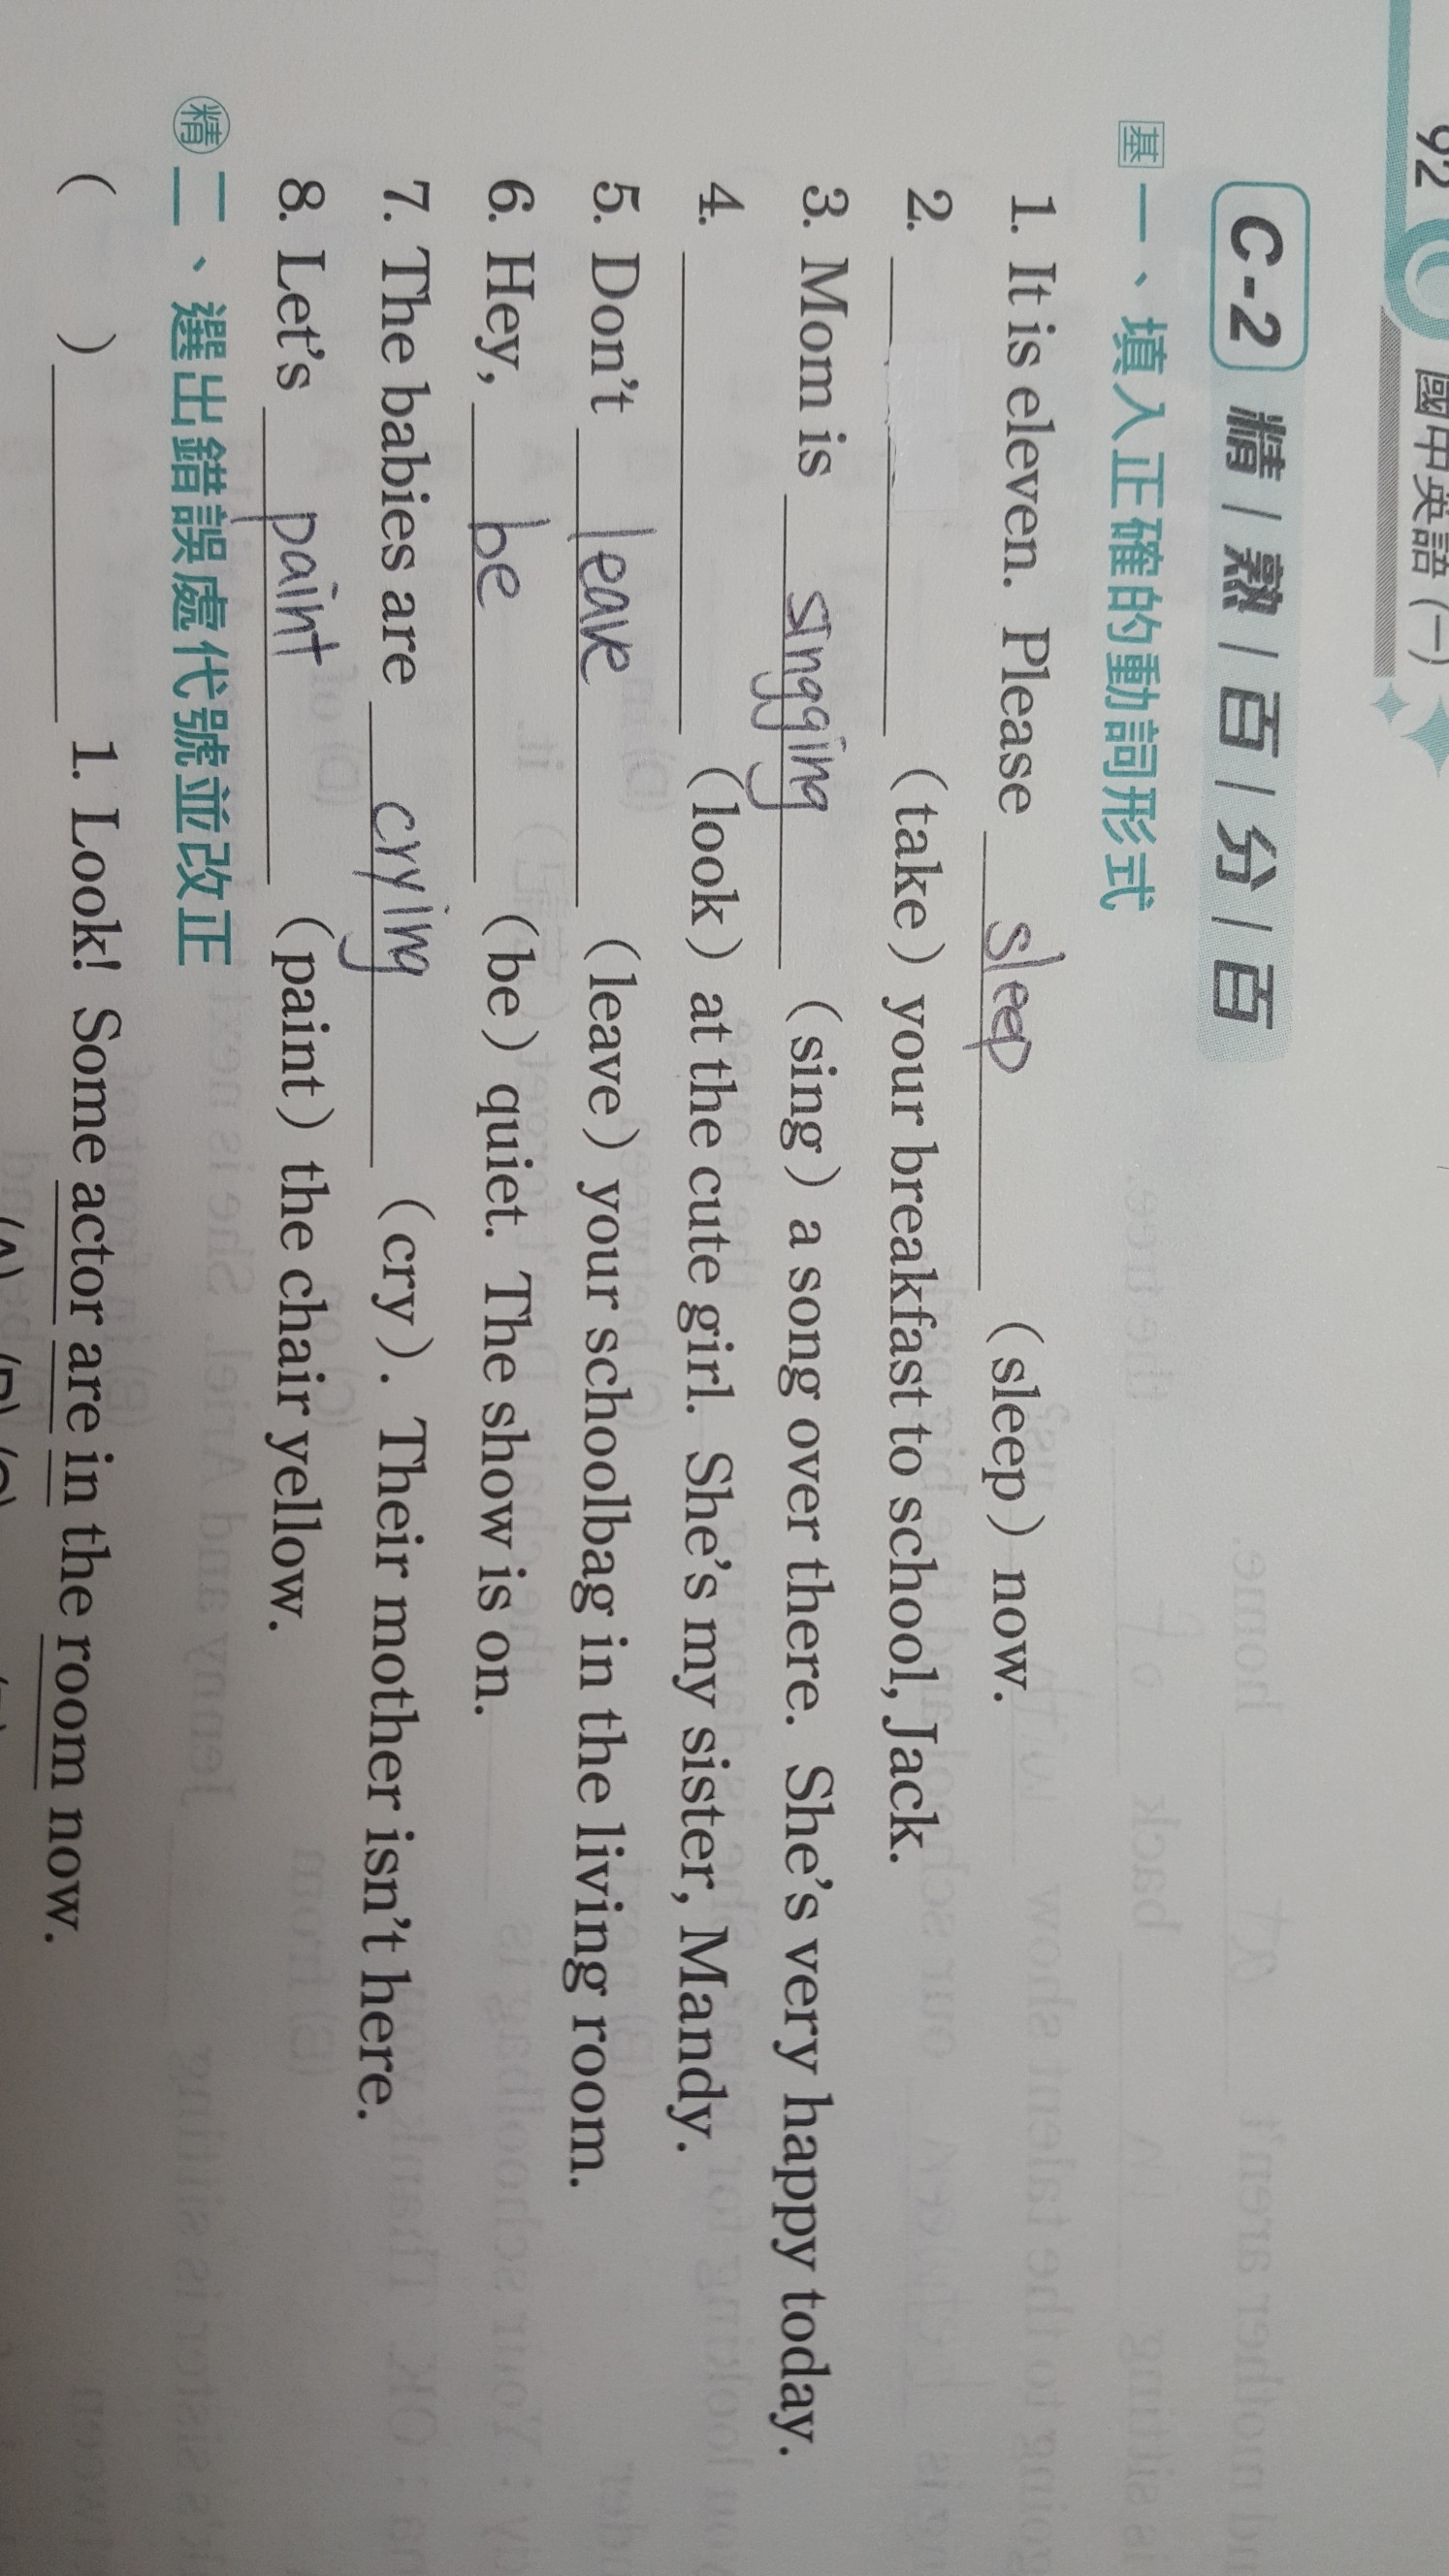 92 國中英語(一)
C-2 精/熟/百/分/百
基 一、填入正確的動詞形式
1. It is eleven. Please sleep (sleep) now.
2. ______ (take) your breakfast to school, Jack.
3. Mom is singging (sing) a song over there. She's very happy today.
4. ______ (look) at the cute girl. She's my sister, Mandy.
5. Don't leave (leave) your schoolbag in the living room.
6. Hey, be (be) quiet. The show is on.
7. The babies are crying (cry). Their mother isn't here.
8. Let's paint (paint) the chair yellow.
精 二、選出錯誤處代號並改正
( ) ______ 1. Look! Some actor are in the room now.